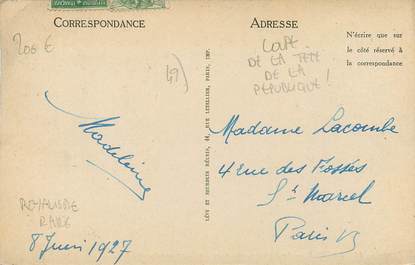 CORRESPONDANCE
ADRESSE
N'écrire que sur
le côté réservé à
la correspondance
200 €
49
COUPE
DE LA TETE
DE LA
REPUBLIQUE !
Madeleine
LÉVY ET NEURDEIN RÉUNIS, 44, RUE LETELLIER, PARIS, IMP.
Madame Lacombe
4 rue des Fossés
St Marcel
Paris
ROYALISME
RARE
8 Juin 1927